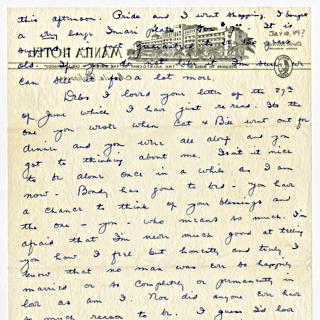 this afternoon. Pride and I went shopping. I bought
a very large Imari plate for $17.00. It is
July 10, 49?
MANILA HOTEL
old. If you do not like it I'm sure we
can sell it for a lot more.
Debs I loved your letter of the 27th
of June which I have just re read. It's the
one you wrote when Cat & Bill went out for
dinner and you were all alone and you
got to thinking about me. Isn't it nice
to be alone once in a while as I am
now - Bondy has gone to bed - you have
a chance to think of your blessings and
the one - you - who means so much. I'm
afraid that I'm never much good at telling
you how I feel but honestly and truly I
know that no man was ever so happily
married or so completely or permanently in
love as am I. Nor did anyone ever have
so much reason to be. I guess I'd look